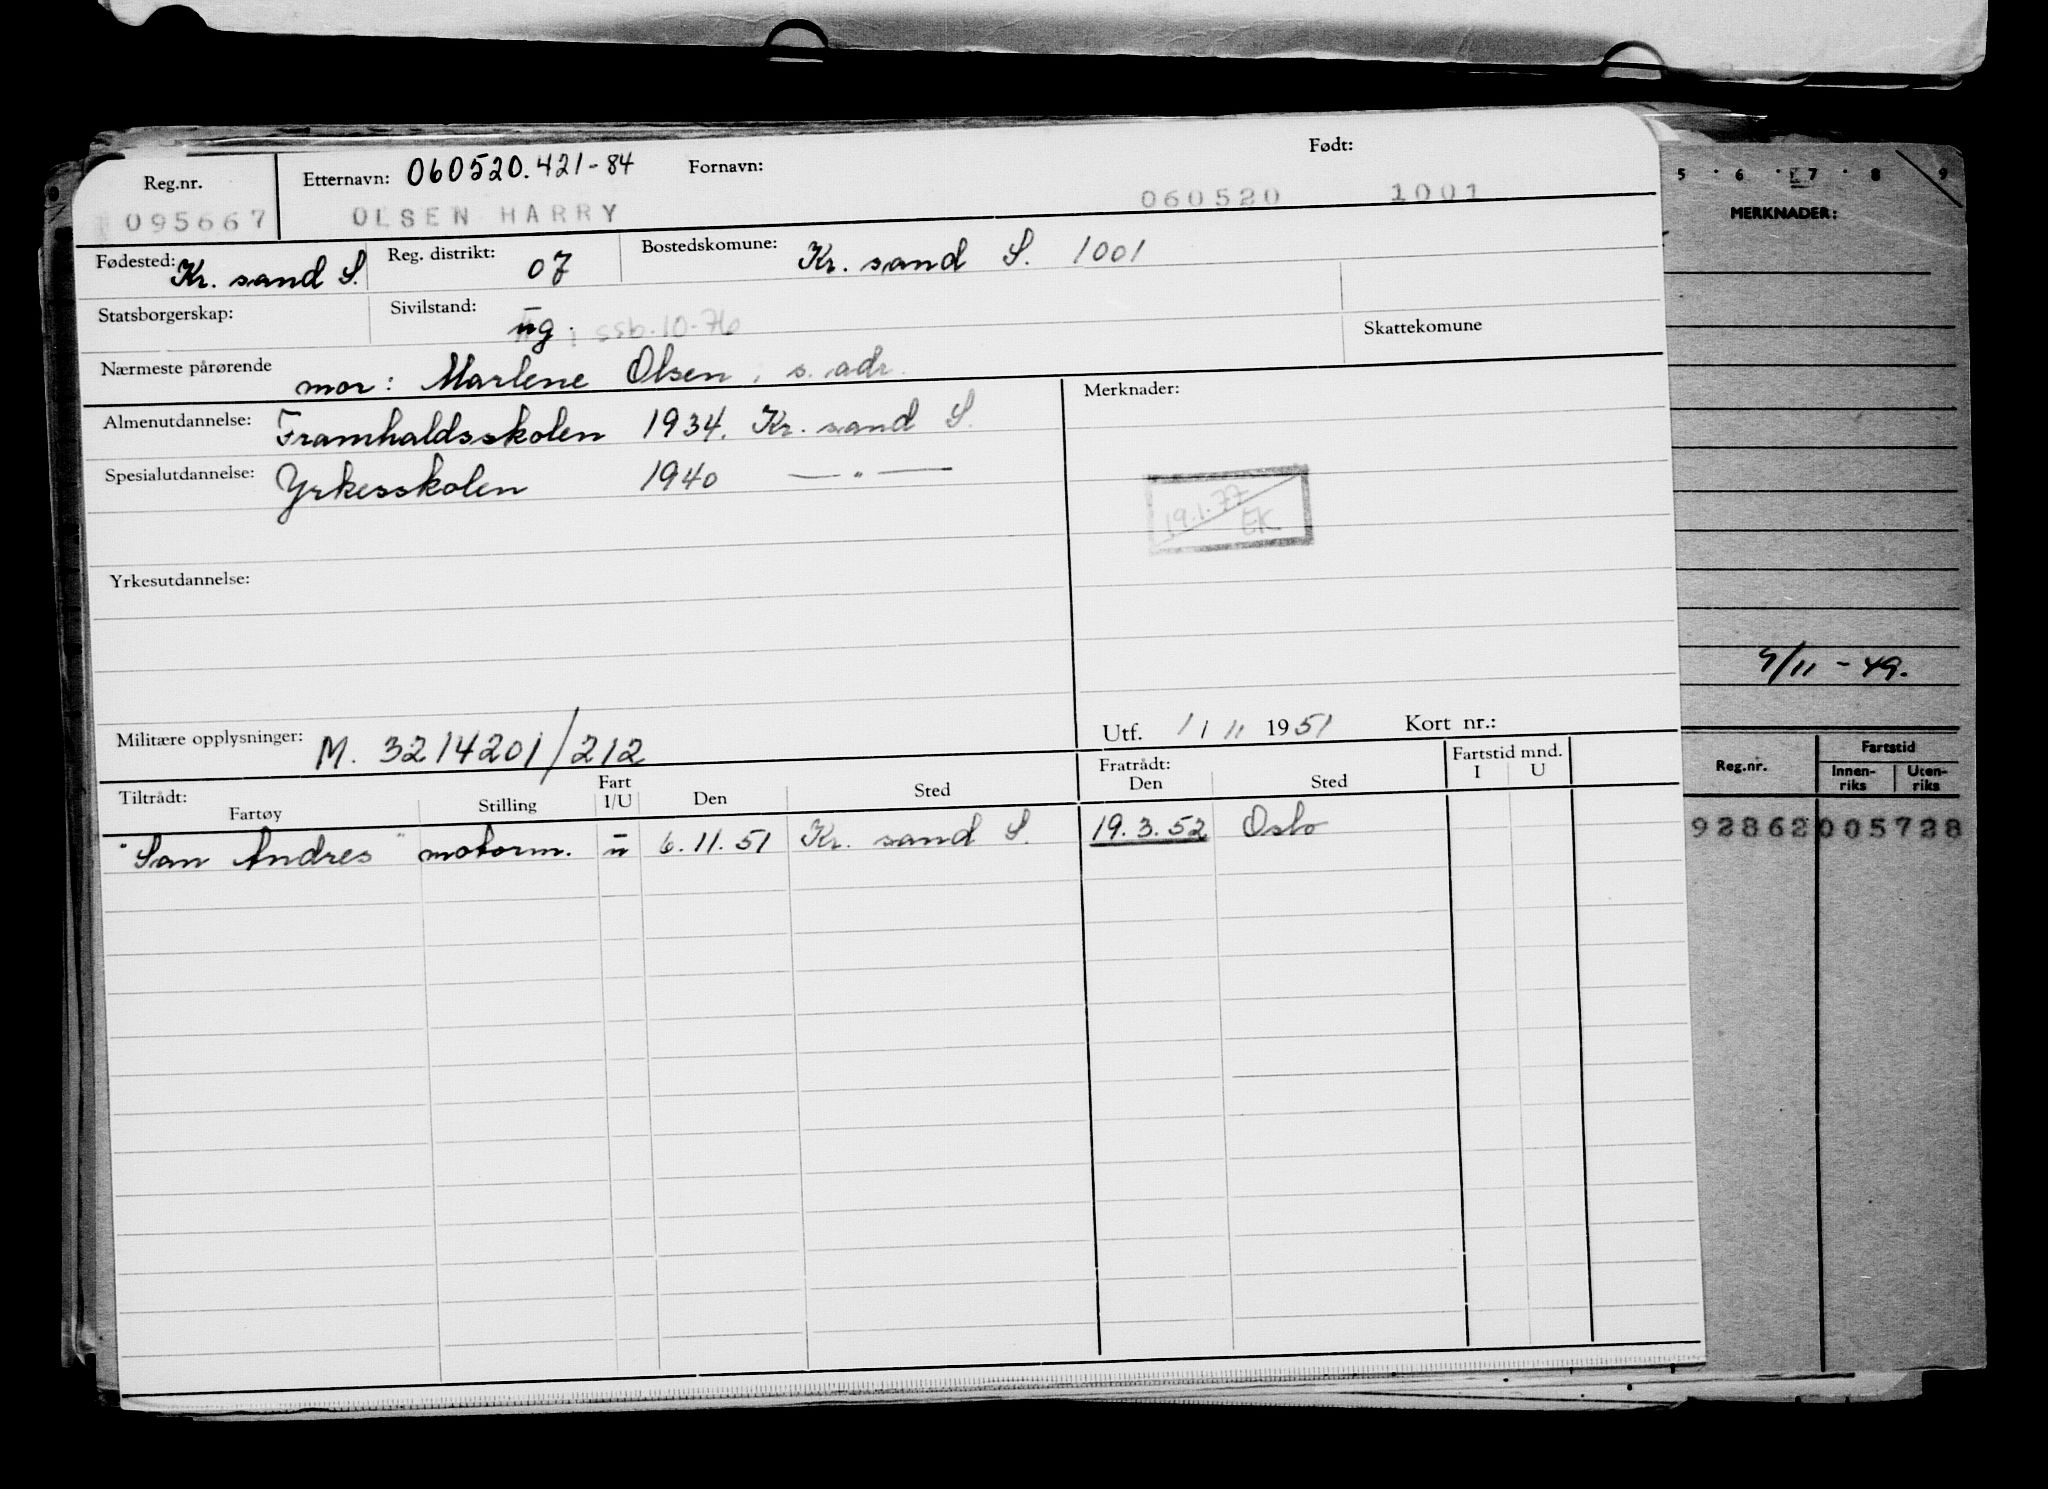 Reg.nr. Etternavn: 060520.421-84 Fornavn: Født:
095667 OLSEN HARRY 060520 1001
Fødested: Kr. sand S. Reg. distrikt: 07 Bostedskomune: Kr. sand S. 1001
Statsborgerskap: Sivilstand: ug. ssb. 10-76 Skattekomune
Nærmeste pårørende mor: Marlene Olsen, s. adr.
Almenutdannelse: Framhaldsskolen 1934. Kr. sand S. Merknader:
Spesialutdannelse: Yrkesskolen 1940 — " —
19.1.77
EK
Yrkesutdannelse:
Militære opplysninger: M. 3214201/212 Utf. 1/11 1951 Kort nr.:
Tiltrådt: Fart Fratrådt: Fartstid mnd.
Fartøy Stilling I/U Den Sted Den Sted I U
"San Andres" motorm. u 6.11.51 Kr. sand S. 19.3.52 Oslo
5 · 6 · 7 · 8 9
MERKNADER:
9/11 - 49.
Reg.nr. Fartstid
Innen-riks Uten-riks
92862 005728